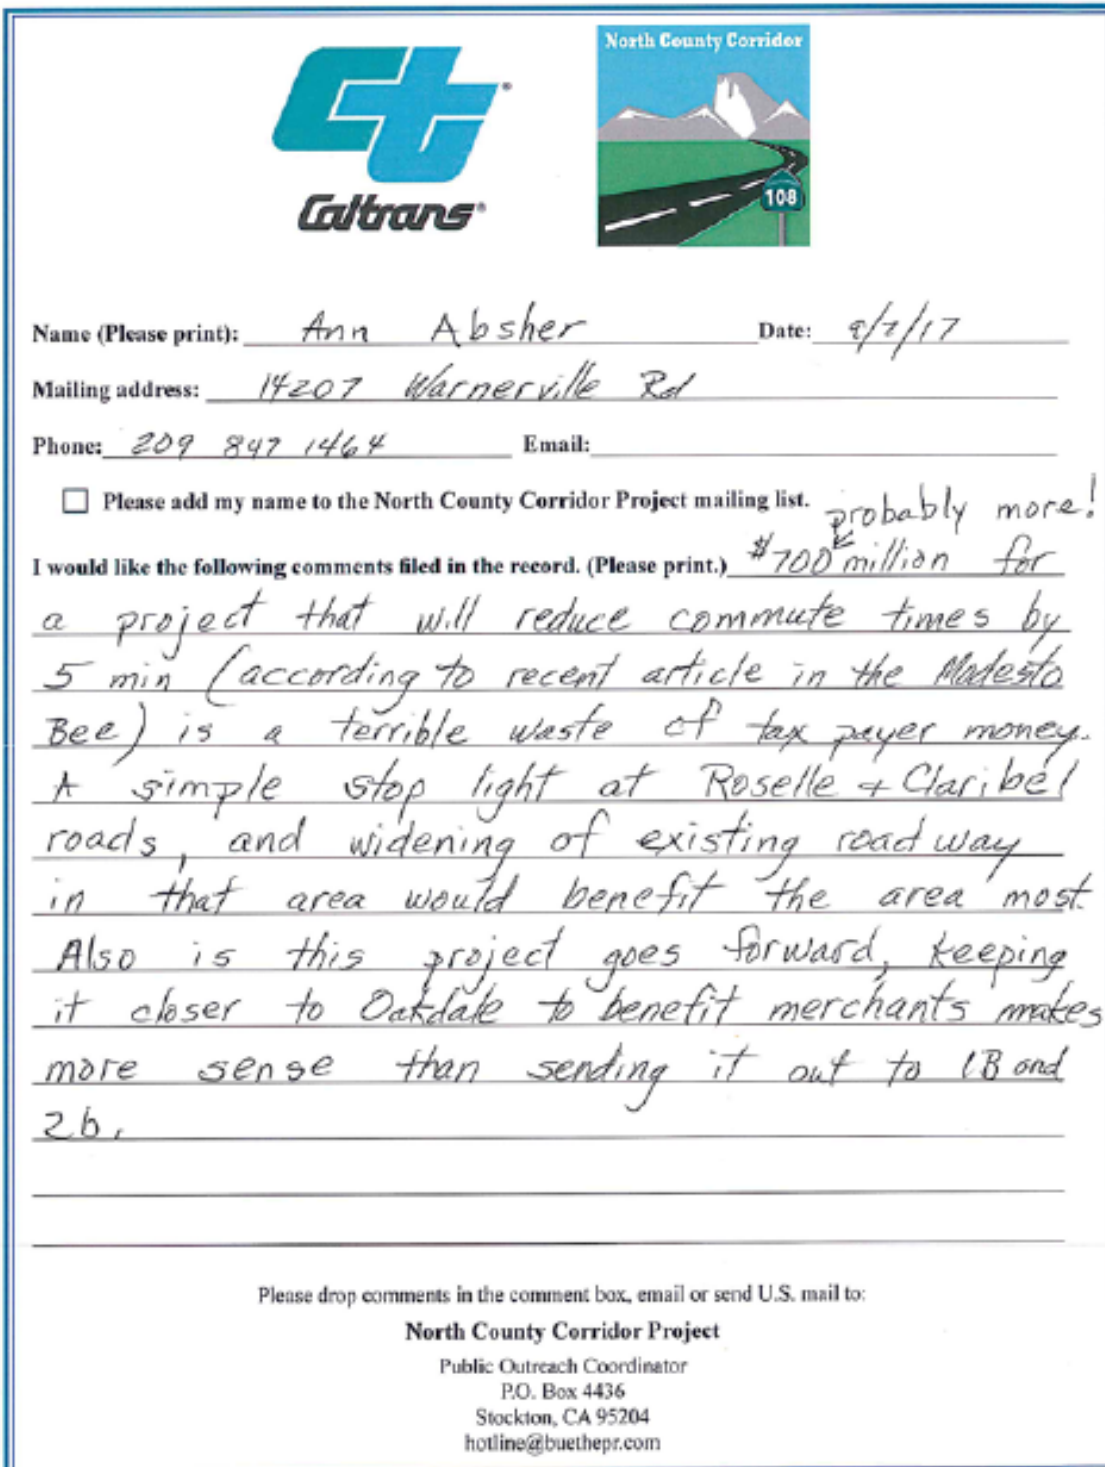 Ct®
Caltrans®
North County Corridor
108
Name (Please print): Ann Absher Date: 9/7/17
Mailing address: 14207 Warnerville Rd
Phone: 209 847 1464 Email:
Please add my name to the North County Corridor Project mailing list.
probably more!
I would like the following comments filed in the record. (Please print.) $700 million for
a project that will reduce commute times by
5 min (according to recent article in the Modesto
Bee) is a terrible waste of tax payer money.
A simple stop light at Roselle + Claribel
roads, and widening of existing road way
in that area would benefit the area most.
Also is this project goes forward, keeping
it closer to Oakdale to benefit merchants makes
more sense than sending it out to 1B and
2b.
Please drop comments in the comment box, email or send U.S. mail to:
North County Corridor Project
Public Outreach Coordinator
P.O. Box 4436
Stockton, CA 95204
hotline@buethepr.com